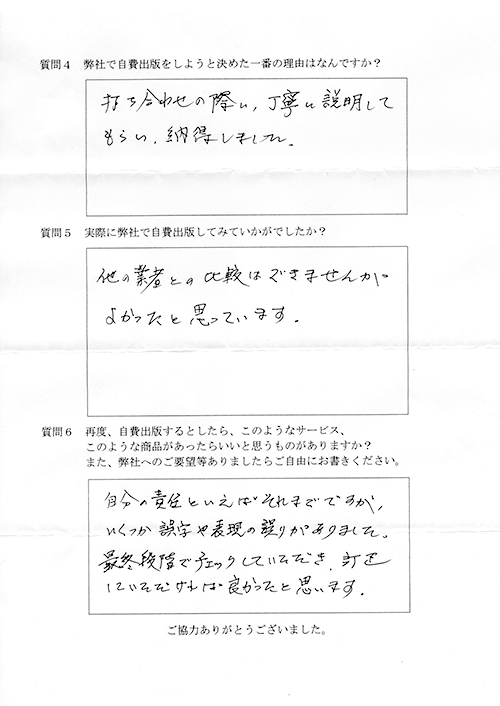 質問4 弊社で自費出版をしようと決めた一番の理由はなんですか?
打ち合わせの際に、丁寧に説明して
もらい、納得しました。
質問5 実際に弊社で自費出版してみていかがでしたか?
他の業者との比較はできませんが
よかったと思っています。
質問6 再度、自費出版するとしたら、このようなサービス、
このような商品があったらいいと思うものがありますか?
また、弊社へのご要望等ありましたらご自由にお書きください。
自分の責任といえばそれまでですが、
いくつか誤字や表現の誤りがありました。
最終段階でチェックしていただき、訂正
していただければ良かったと思います。
ご協力ありがとうございました。